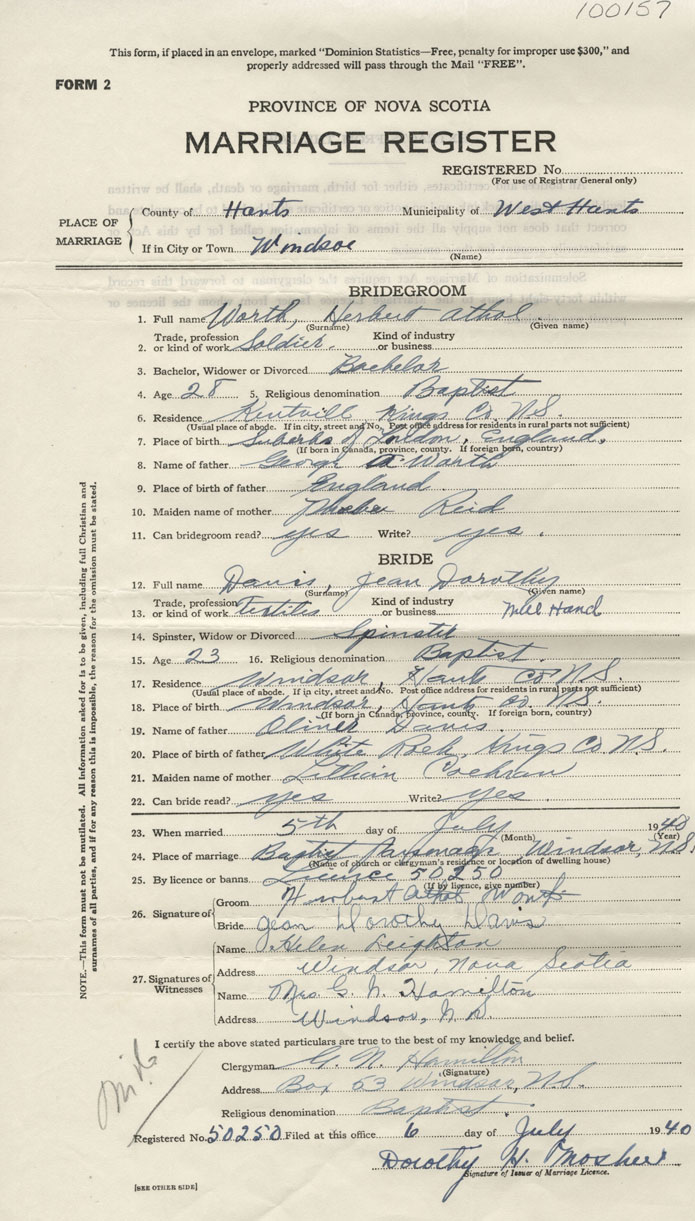 100157
This form, if placed in an envelope, marked "Dominion Statistics—Free, penalty for improper use $300," and
properly addressed will pass through the Mail "FREE".
FORM 2
PROVINCE OF NOVA SCOTIA
MARRIAGE REGISTER
REGISTERED No.
(For use of Registrar General only)
PLACE OF MARRIAGE
County of Hants Municipality of West Hants
If in City or Town Windsor
(Name)
BRIDEGROOM
1. Full name Worth, Herbert Athol
(Surname) (Given name)
2. Trade, profession or kind of work Soldier. Kind of industry or business
3. Bachelor, Widower or Divorced Bachelor
4. Age 28 5. Religious denomination Baptist
6. Residence Kentvill Kings Co. N.S.
(Usual place of abode. If in city, street and No. Post office address for residents in rural parts not sufficient)
7. Place of birth Suburbs of London, England,
(If born in Canada, province, county. If foreign born, country)
8. Name of father George A Worth
9. Place of birth of father England
10. Maiden name of mother Phoebe Reid
11. Can bridegroom read? yes Write? yes.
BRIDE
12. Full name Davis, Jean Dorothy
(Surname) (Given name)
13. Trade, profession or kind of work Textiles Kind of industry or business Mill Hand
14. Spinster, Widow or Divorced Spinster
15. Age 23 16. Religious denomination Baptist.
17. Residence Windsor, Hants Co N.S.
(Usual place of abode. If in city, street and No. Post office address for residents in rural parts not sufficient)
18. Place of birth Windsor, Hants Co. N.S.
(If born in Canada, province, county. If foreign born, country)
19. Name of father Oliver Davis
20. Place of birth of father White Rock, Kings Co N.S.
21. Maiden name of mother Lillian Cochran
22. Can bride read? yes Write? yes.
23. When married 5th day of July 1940
(Month) (Year)
24. Place of marriage Baptist Parsonage Windsor, N.S.
(Name of church or clergyman's residence or location of dwelling house)
25. By licence or banns Licence 50250
(If by licence, give number)
26. Signature of
Groom Herbert Athol Worth
Bride Jean Dorothy Davis
27. Signatures of Witnesses
Name Helen Leighton
Address Windsor, Nova Scotia
Name Mrs G. N. Hamilton
Address Windsor, N.S.
I certify the above stated particulars are true to the best of my knowledge and belief.
Clergyman G. N. Hamilton
(Signature)
Address Box 53 Windsor, N.S.
Religious denomination Baptist.
Registered No. 50250 Filed at this office 6 day of July 1940
Dorothy H. Mosher
Signature of Issuer of Marriage Licence.
[SEE OTHER SIDE]
NOTE.—This form must not be mutilated. All information asked for is to be given, including full Christian and
surnames of all parties, and if for any reason this is impossible, the reason for the omission must be stated.